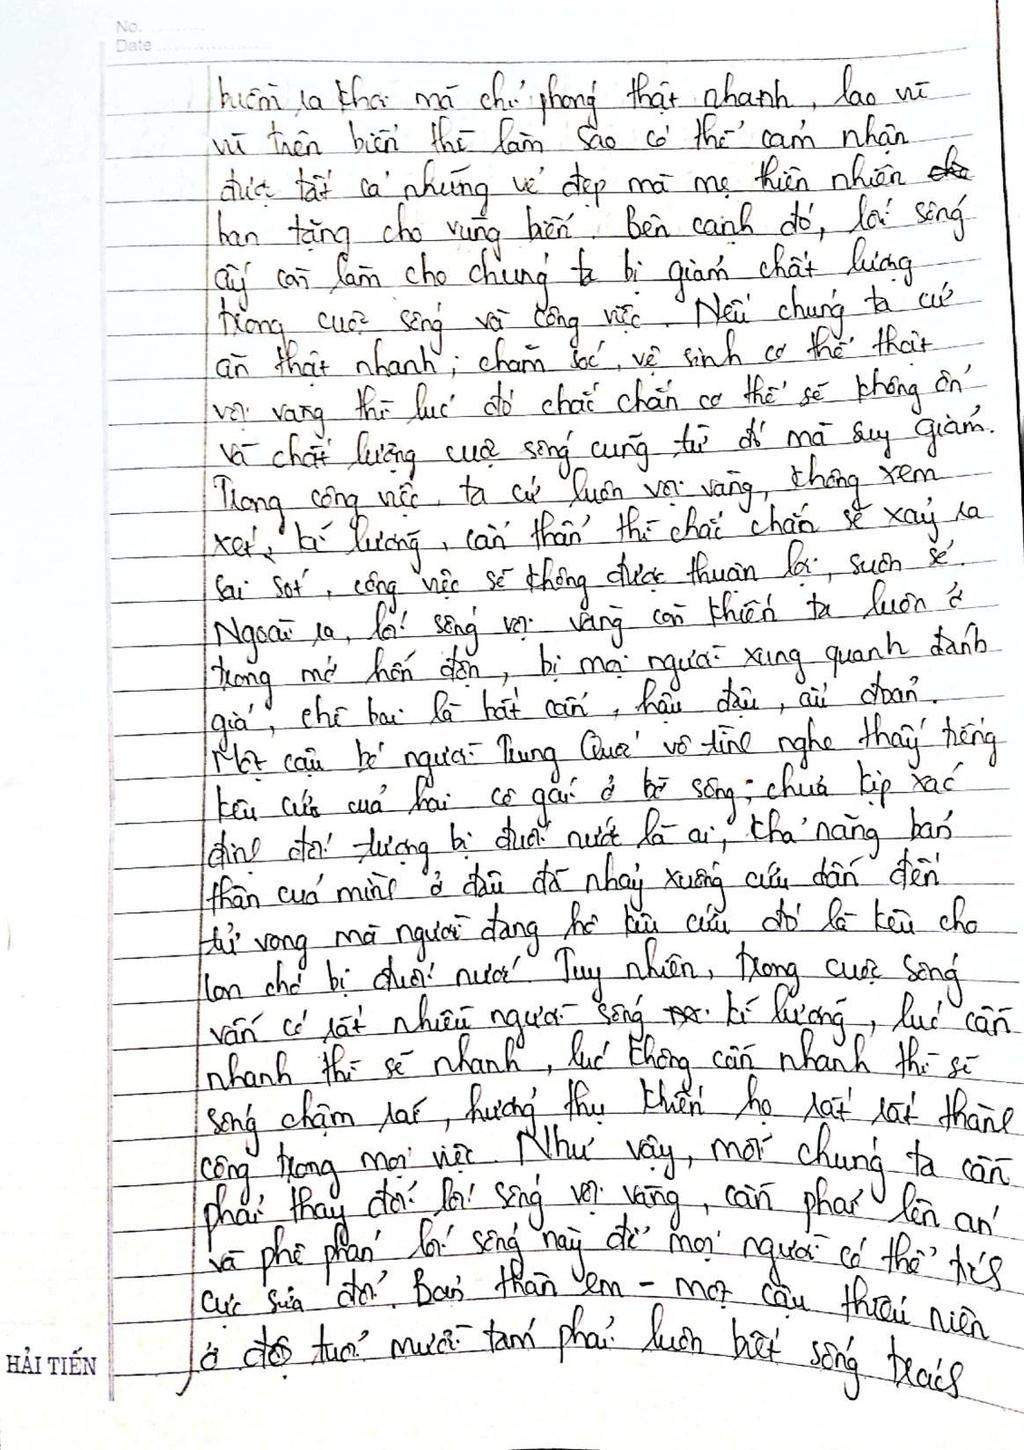 No.
Date
buồm ra khơi mà chỉ phóng thật nhanh, lao vù
vù trên biển thì làm sao có thể cảm nhận
được tất cả những vẻ đẹp mà mẹ thiên nhiên
ban tặng cho vùng biển. Bên cạnh đó, lối sống
ấy còn làm cho chúng ta bị giảm chất lượng
trong cuộc sống và công việc. Nếu chúng ta cứ
ăn thật nhanh; chăm sóc, vệ sinh cơ thể thật
vội vàng thì lúc đó chắc chắn cơ thể sẽ không ổn
và chất lượng cuộc sống cũng từ đó mà suy giảm.
Trong công việc, ta cứ luôn vội vàng, không xem
xét, kĩ lưỡng, cẩn thận thì chắc chắn sẽ xảy ra
sai sót, công việc sẽ không được thuận lợi, suôn sẻ.
Ngoài ra, lối sống vội vàng còn khiến ta luôn ở
trong mớ hỗn độn, bị mọi người xung quanh đánh
giá, chê bai là bất cẩn, hậu đậu, ẩu đoảng.
Một cậu bé người Trung Quốc vô tình nghe thấy tiếng
kêu cứu của hai cô gái ở bờ sông; chưa kịp xác
định đối tượng bị đuối nước là ai, khả năng bản
thân của mình ở đâu đã nhảy xuống cứu dẫn đến
tử vong mà người đang hô kêu cứu đó là kêu cho
con chó bị đuối nước. Tuy nhiên, trong cuộc sống
vẫn có rất nhiều người sống kĩ lưỡng, lúc cần
nhanh thì sẽ nhanh, lúc không cần nhanh thì sẽ
sống chậm rãi, hưởng thụ khiến họ rất rất thành
công trong mọi việc. Như vậy, mỗi chúng ta cần
phải thay đổi lối sống vội vàng, cần phải lên án
và phê phán lối sống này để mọi người có thể tích
cực sửa đổi. Bản thân em - một cậu thiếu niên
ở độ tuổi mười tám phải luôn biết sống trách
HẢI TIẾN